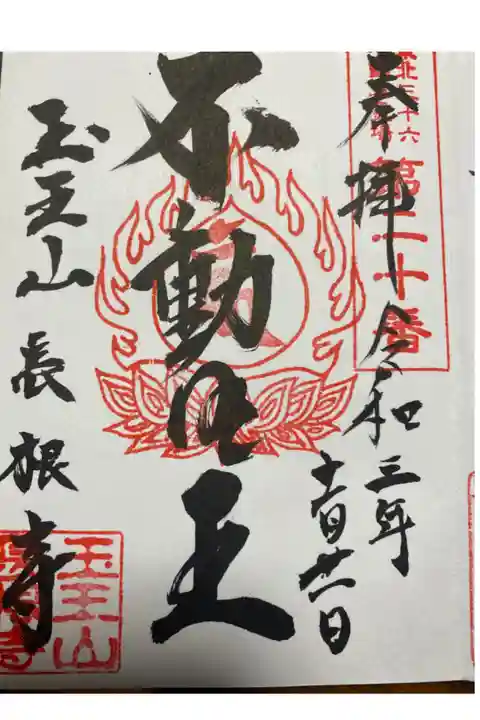 奉拝 令和三年
十一月廿一日
東北三十六
第二十番
不動明王
玉王山 長根寺
玉王山
長根寺